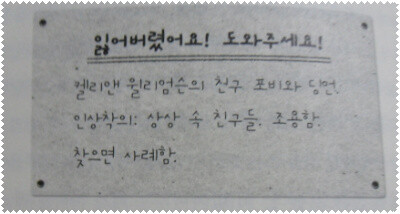 잃어버렸어요! 도와주세요!
켈리앤 윌리엄슨의 친구 포비와 딩언.
인상착의: 상상 속 친구들. 조용함.
찾으면 사례함.